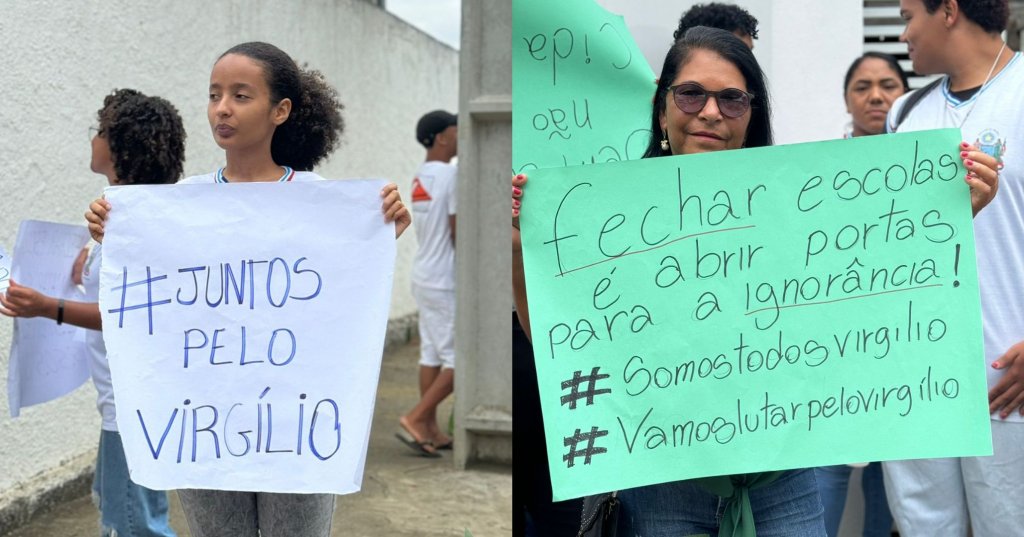 #JUNTOS
PELO
VIRGÍLIO
Cida
não
fechar escolas
é abrir portas
para a ignorância!
#Somostodosvirgílio
#Vamoslutarpelovirgílio